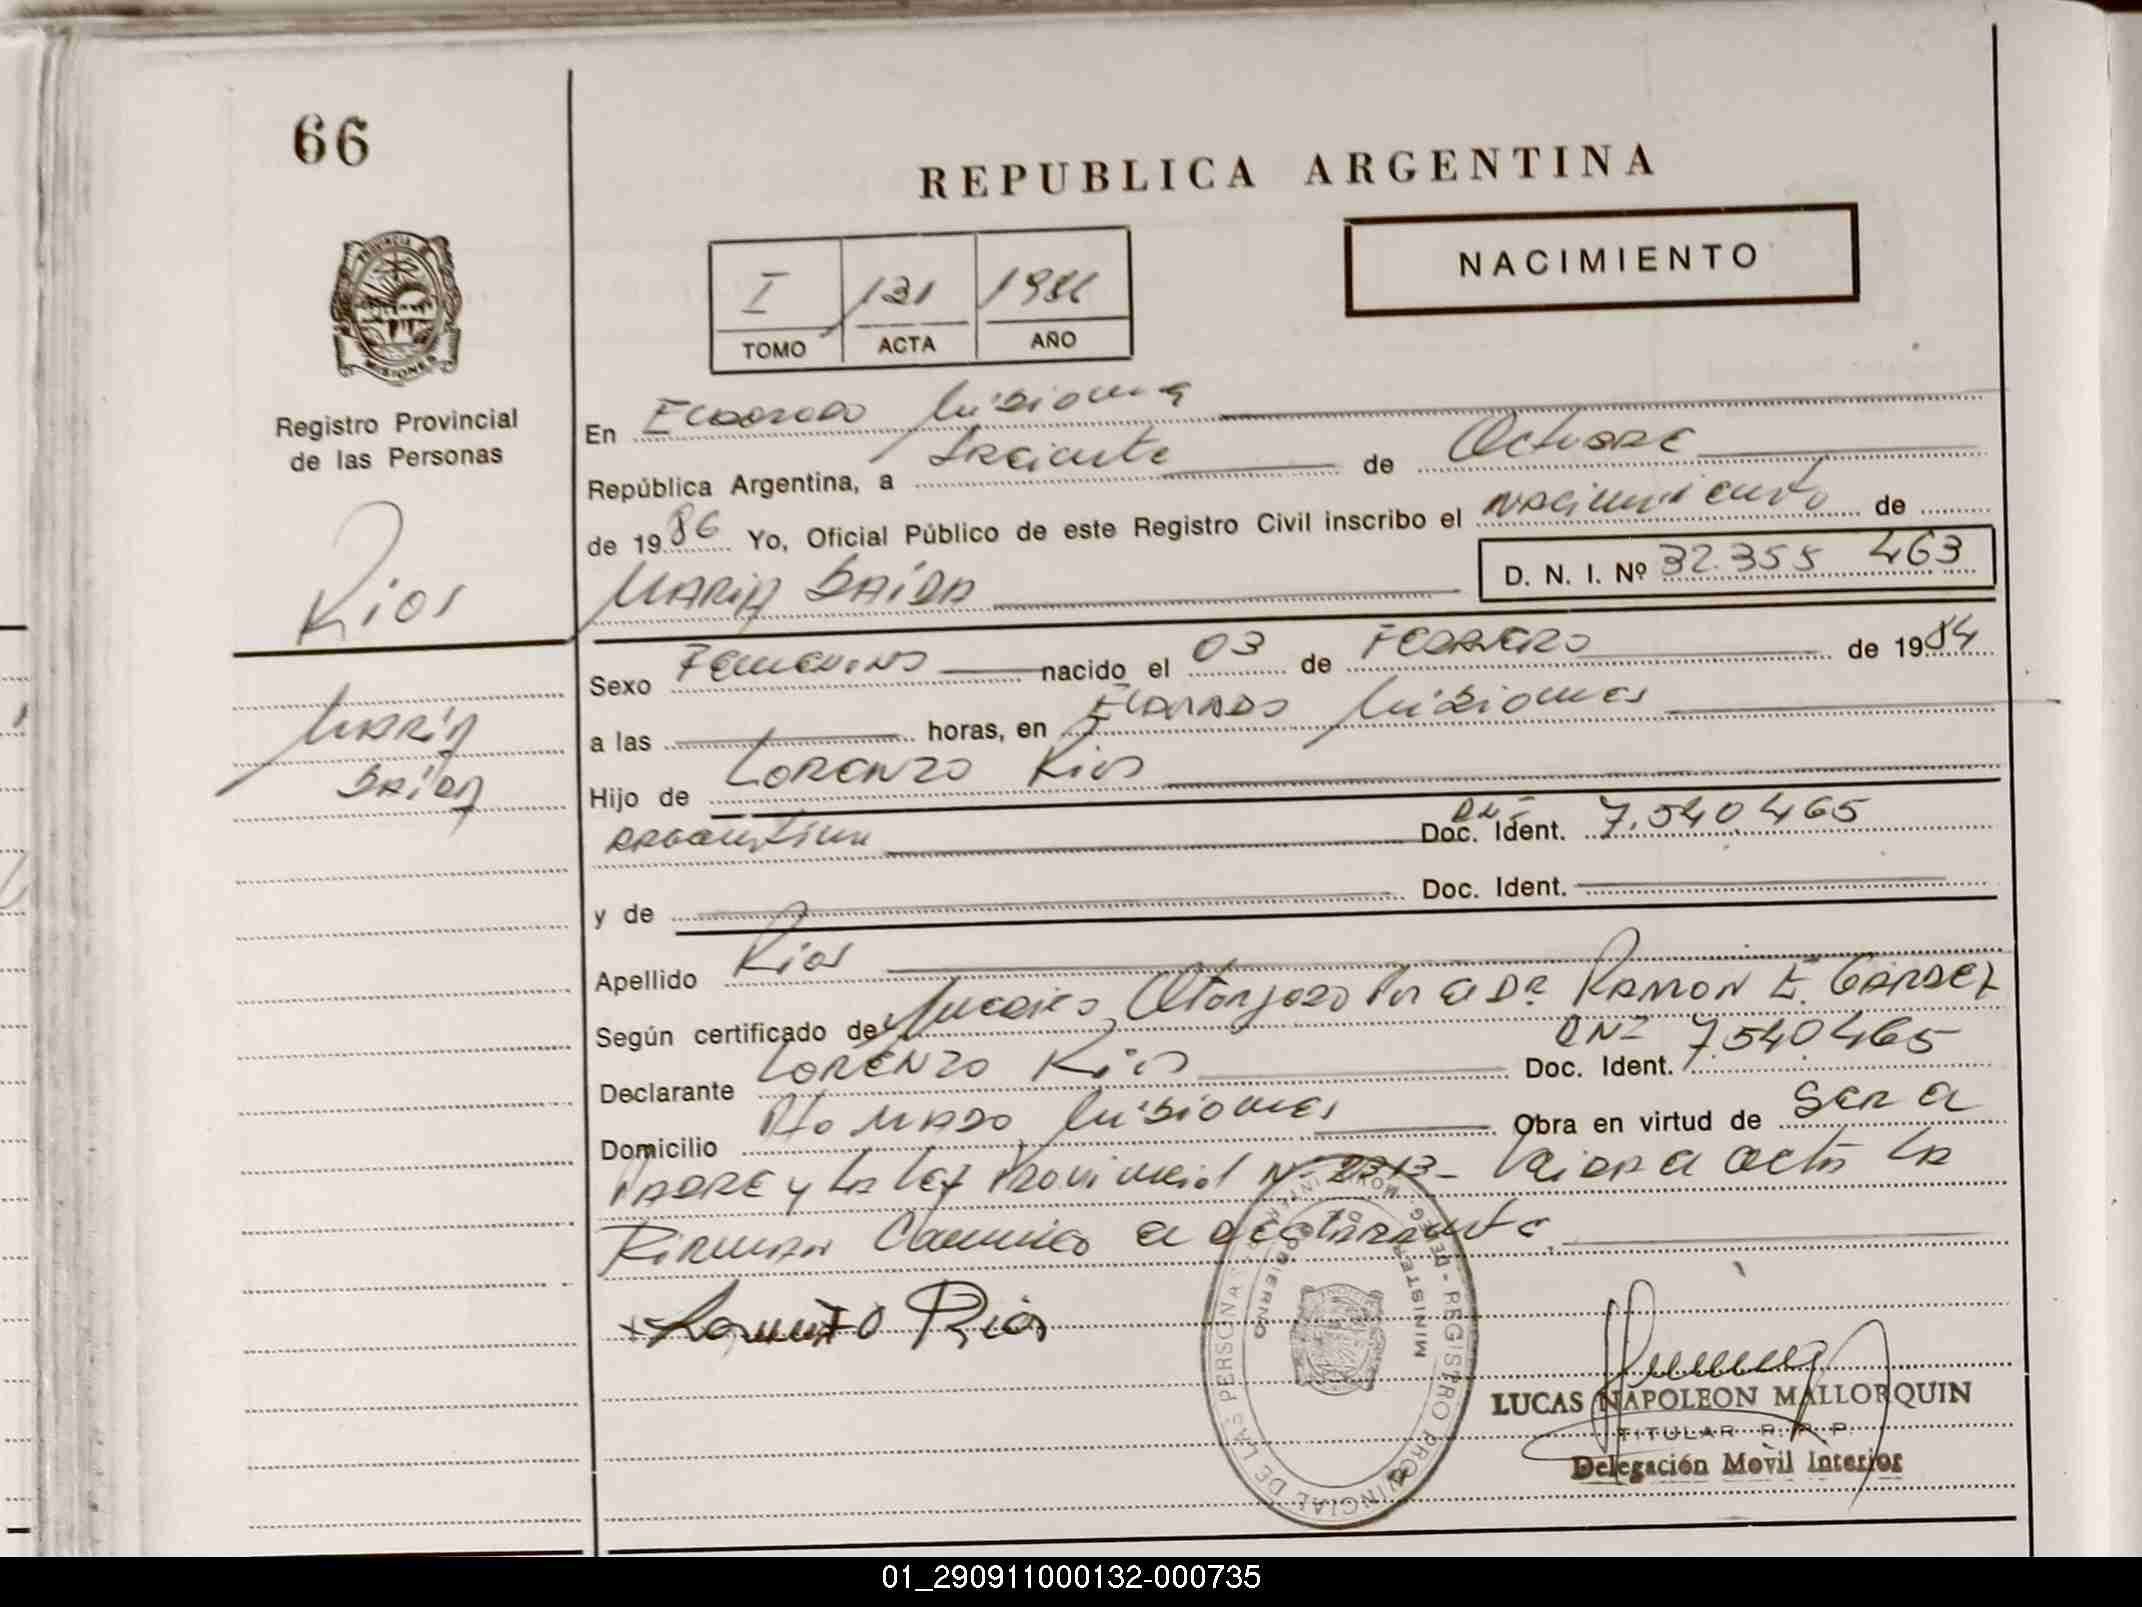 66
REPUBLICA ARGENTINA
NACIMIENTO
I 131 1986
TOMO ACTA AÑO
PROVINCIA
MISIONES
Registro Provincial
de las Personas
Rios
Maria
Saida
En Eldorado Misiones
República Argentina, a treinta de Octubre
de 1986 Yo, Oficial Público de este Registro Civil inscribo el nacimiento de
Maria Saida D. N. I. Nº 32.355 463
Sexo Femenino nacido el 03 de Febrero de 1984
a las horas, en Eldorado Misiones
Hijo de Lorenzo Rios
argentino DNI Doc. Ident. 7.540.465
y de Doc. Ident.
Apellido Rios
Según certificado de Medico Otorgado Por el Dr. Ramon E. Gardez
Declarante Lorenzo Rios DNI Doc. Ident. 7.540465
Domicilio Misiones Obra en virtud de Ser el
Padre y la Ley Provincial Nº 2313- Leida el acta la
Firman Conmigo el declarante.
Lorenzo Rios
REGISTRO PROVINCIAL DE LAS PERSONAS
MINISTERIO DE GOBIERNO
LUCAS NAPOLEON MALLORQUIN
TITULAR R. P. P.
Delegación Movil Interior
01_290911000132-000735